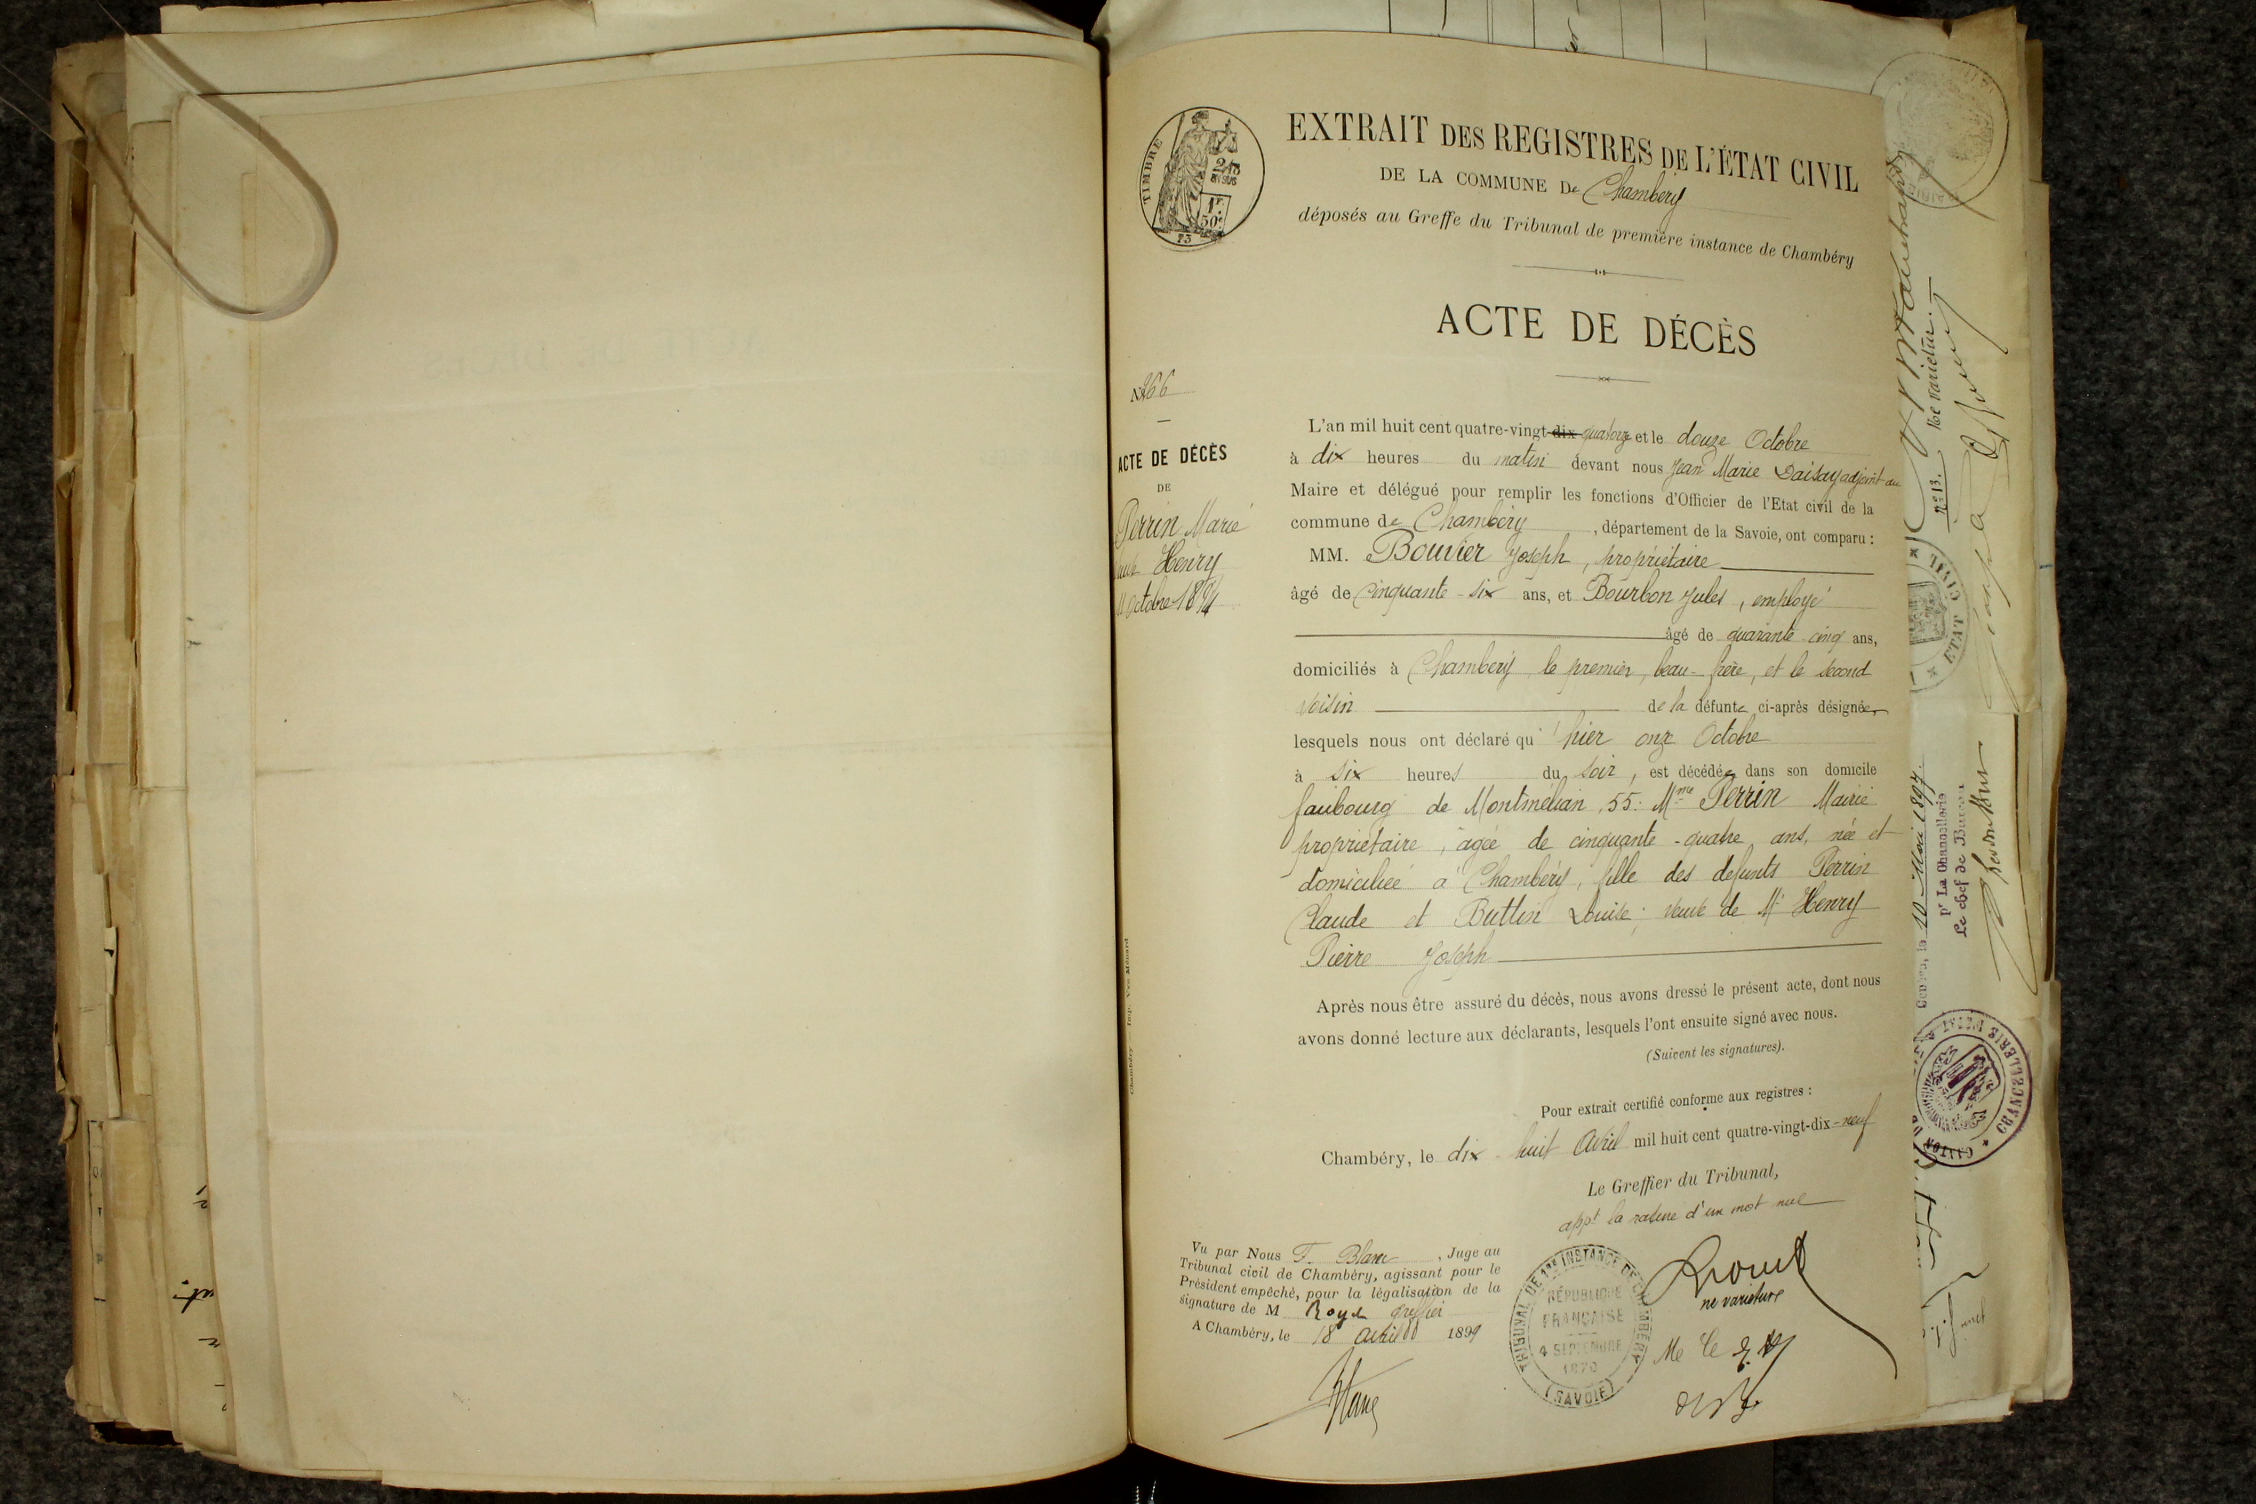 TIMBRE
2/10
EN SUS
1F
50c
73
EXTRAIT DES REGISTRES DE L'ÉTAT CIVIL
DE LA COMMUNE De Chambéry
déposés au Greffe du Tribunal de première instance de Chambéry
ACTE DE DÉCÈS
N° 266
ACTE DE DÉCÈS
DE
Perrin Marie
veuve Henry
11 octobre 1894
L'an mil huit cent quatre-vingt-dix quatorze et le douze Octobre
à dix heures du matin devant nous Jean Marie Daisay adjoint au
Maire et délégué pour remplir les fonctions d'Officier de l'Etat civil de la
commune de Chambéry, département de la Savoie, ont comparu :
MM. Bouvier Joseph, propriétaire
âgé de cinquante-six ans, et Bourbon Jules, employé
âgé de quarante cinq ans,
domiciliés à Chambéry, le premier, beau-frère, et le second
voisin de la défunte ci-après désignée,
lesquels nous ont déclaré qu'hier onze Octobre
à six heures du soir, est décédée dans son domicile
faubourg de Montmélian, 55. Mme Perrin Marie
propriétaire, âgée de cinquante-quatre ans, née et
domiciliée à Chambéry, fille des défunts Perrin
Claude et Buttin Louise; veuve de Mr Henry
Pierre Joseph
Après nous être assuré du décès, nous avons dressé le présent acte, dont nous
avons donné lecture aux déclarants, lesquels l'ont ensuite signé avec nous.
(Suivent les signatures).
Pour extrait certifié conforme aux registres :
Chambéry, le dix-huit Avril mil huit cent quatre-vingt-dix-neuf
Le Greffier du Tribunal,
appt la rature d'un mot nul
ne varietur
Vu par Nous F. Blanc, Juge au
Tribunal civil de Chambéry, agissant pour le
Président empêché, pour la légalisation de la
signature de M greffier
A Chambéry, le 18 avril 1899
Blanc
TRIBUNAL DE 1re INSTANCE DE CHAMBÉRY
RÉPUBLIQUE
FRANÇAISE
4 SEPTEMBRE
1870
(SAVOIE)
Chambéry — Imp. Vve Ménard
n° 13. Ne varietur.
ETAT CIVIL
Genève, le 10 Mai 1897.
pr La Chancellerie
Le chef de Bureau
CHANCELLERIE D'ETAT
CANTON DE